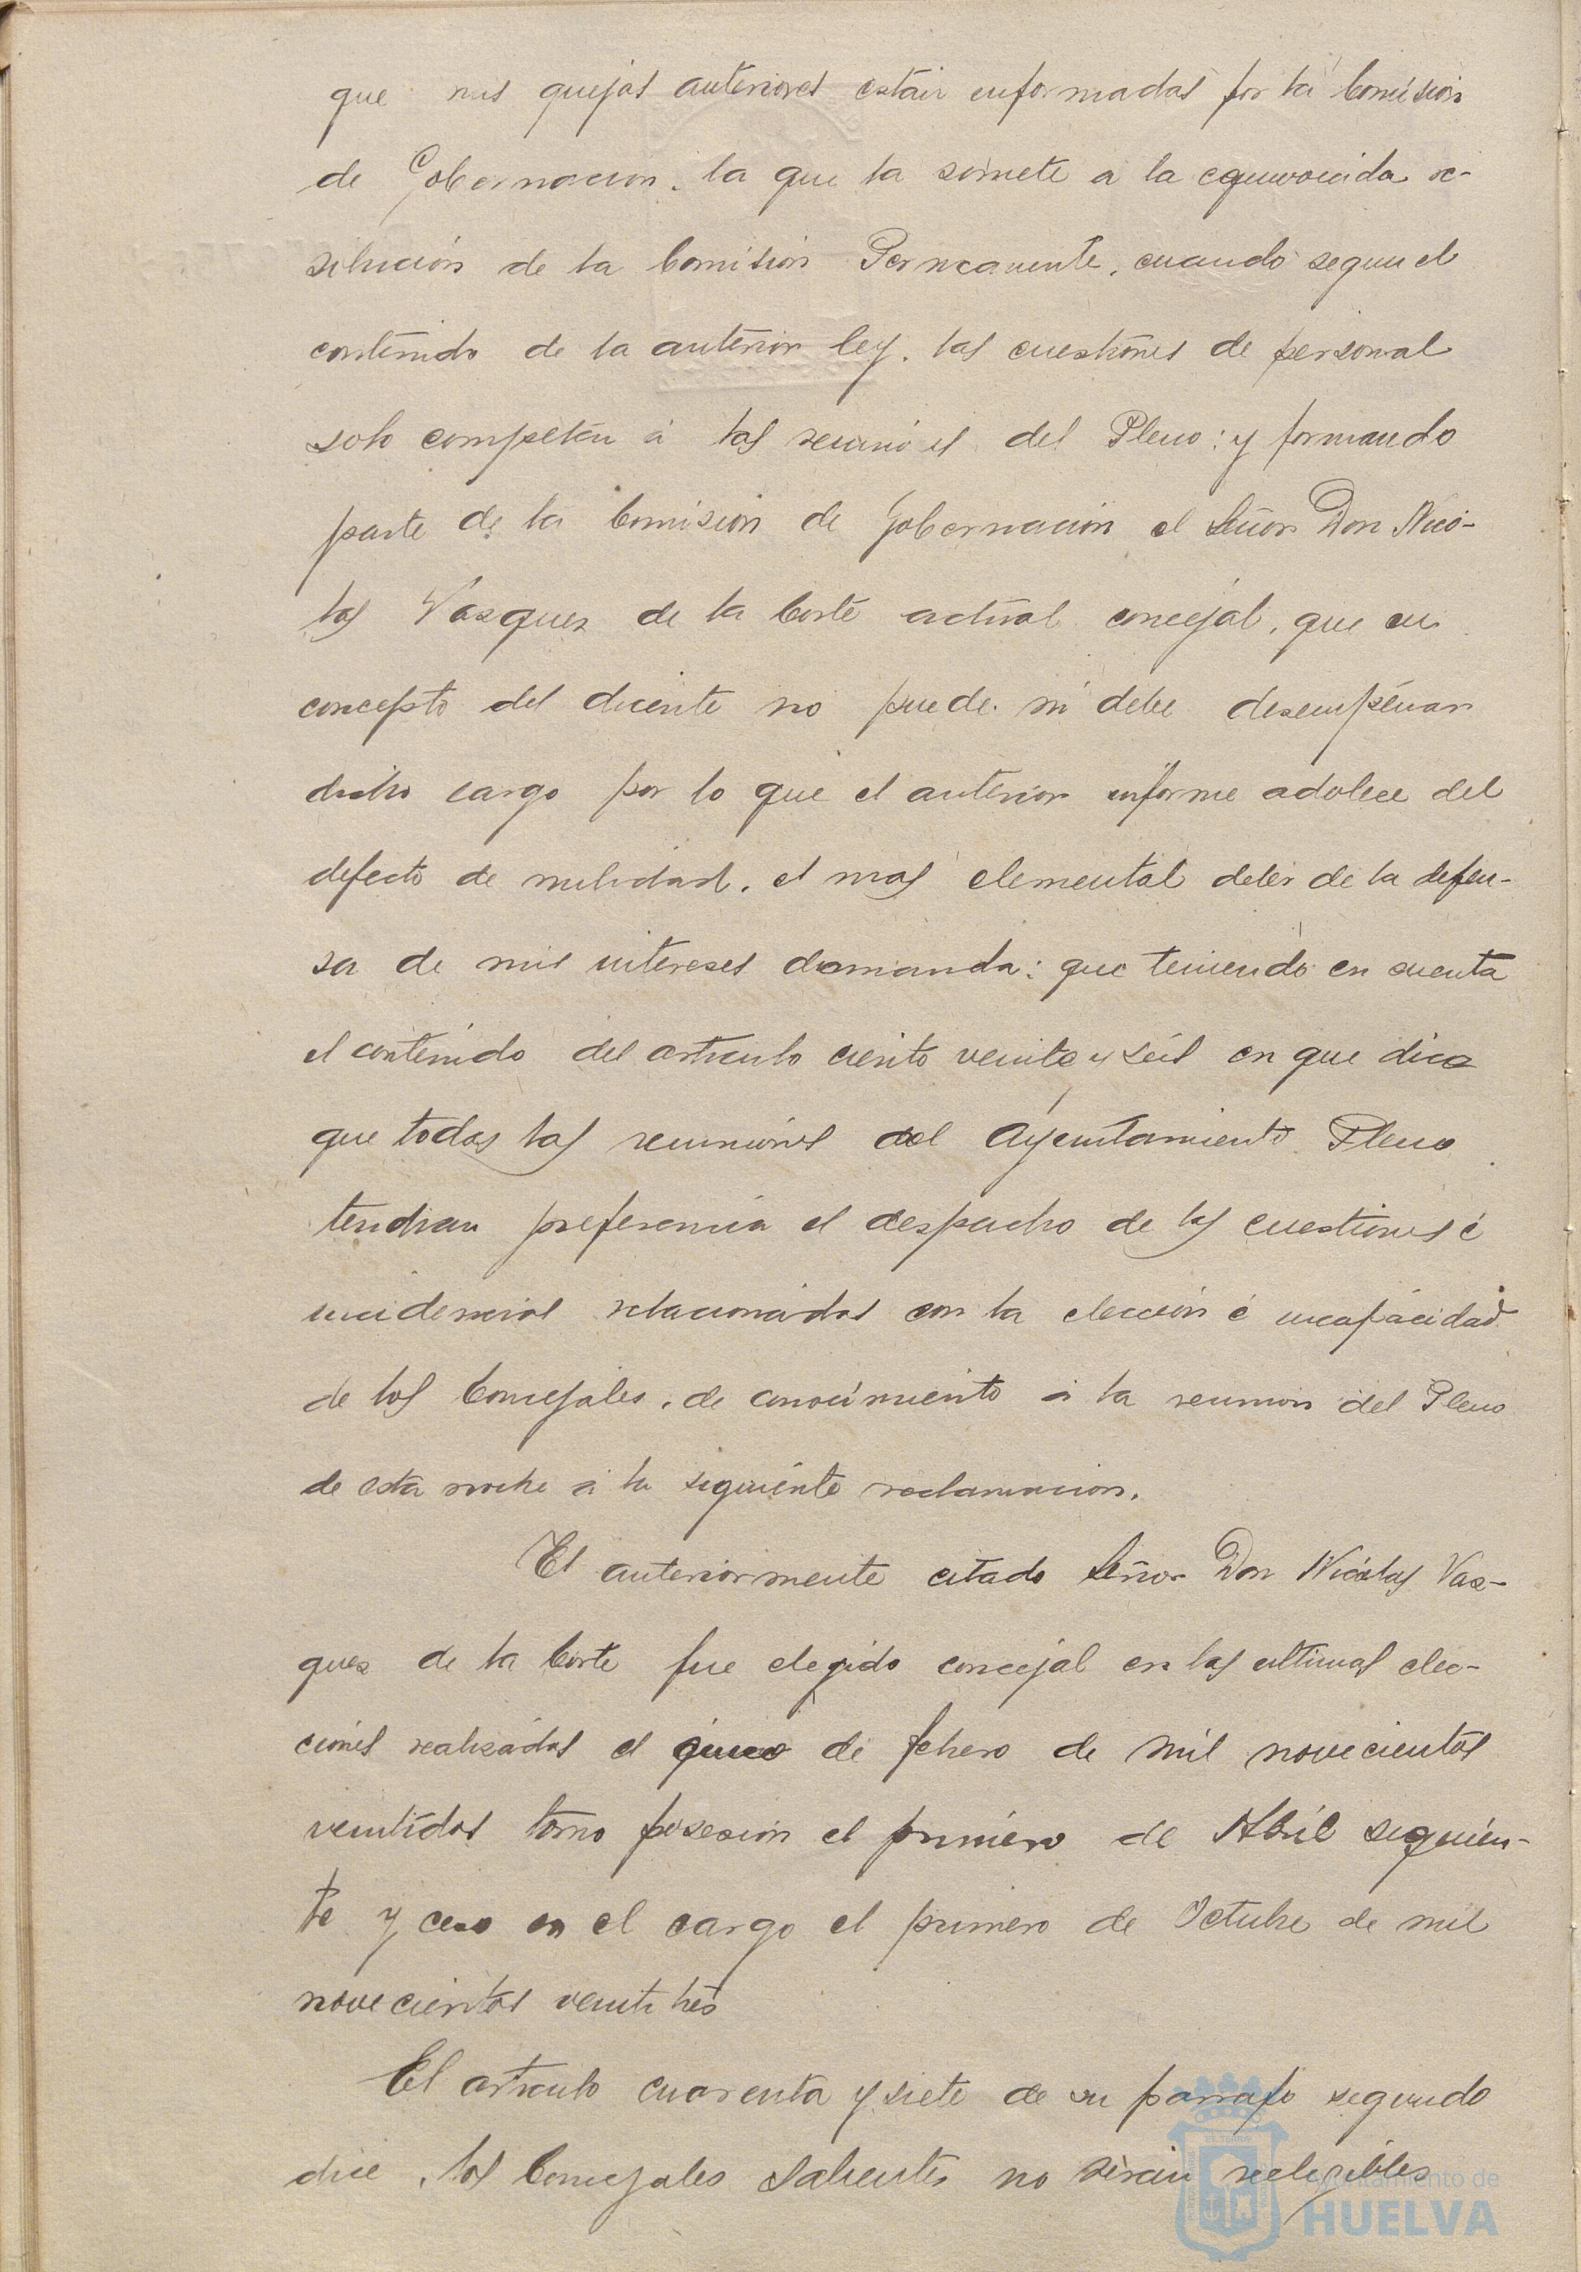 que mis quejas anteriores están informadas por la Comisión
de Gobernacion, la que la somete a la equivocada re-
solución de la Comisión Permanente, cuando segun el
contenido de la anterior ley, las cuestiones de personal
solo competen á las reuniones del Pleno: y formando
parte de la Comision de Gobernación el Señor Don Nico-
las Vazquez de la Corte actual concejal, que en
concepto del dicente no puede ni debe desempeñar
dicho cargo por lo que el anterior informe adolece del
defecto de nulidad, el mas elemental deber de la defen-
sa de mis intereses demanda: que teniendo en cuenta
el contenido del articulo ciento veinte y seis en que dice
que todas las reuniones del Ayuntamiento Pleno
tendran preferencia el despacho de las cuestiones é
incidencias relacionadas con la elección é incapacidad
de los Concejales, de conocimiento a la reunion del Pleno
de esta noche a la siguiente reclamacion.
El anteriormente citado Señor Don Nicolas Vaz-
quez de la Corte fue elegido concejal en las ultimas elec-
ciones realizadas el cinco de febrero de mil novecientos
veintidos tomo posesion el primero de Abril siguien-
te y ceso en el cargo el primero de Octubre de mil
novecientos veintitrés
El articulo cuarenta y siete de su parrafo segundo
dice, los Concejales salientes no serán reelegibles
Ayuntamiento de
HUELVA